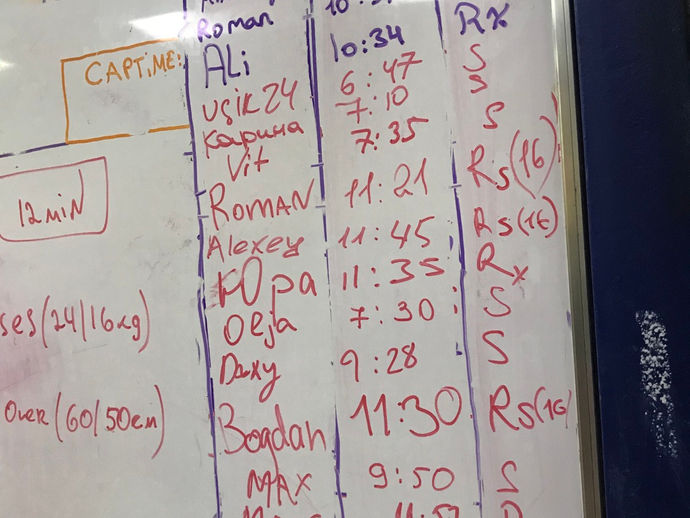 Roman
CAPTIME: ALi 10:34 Rx
usik24 6:47 S
Карина 7:10 S
Vit 7:35 S
12 MIN
ROMAN 11:21 Rs(16)
Alexey 11:45 Rs(16)
Юра 11:35 Rx
ses (24/16kg) Olja 7:30 S
Daxy 9:28 S
Over (60/50cm) Bogdan 11:30 Rs(16)
MAX 9:50 S